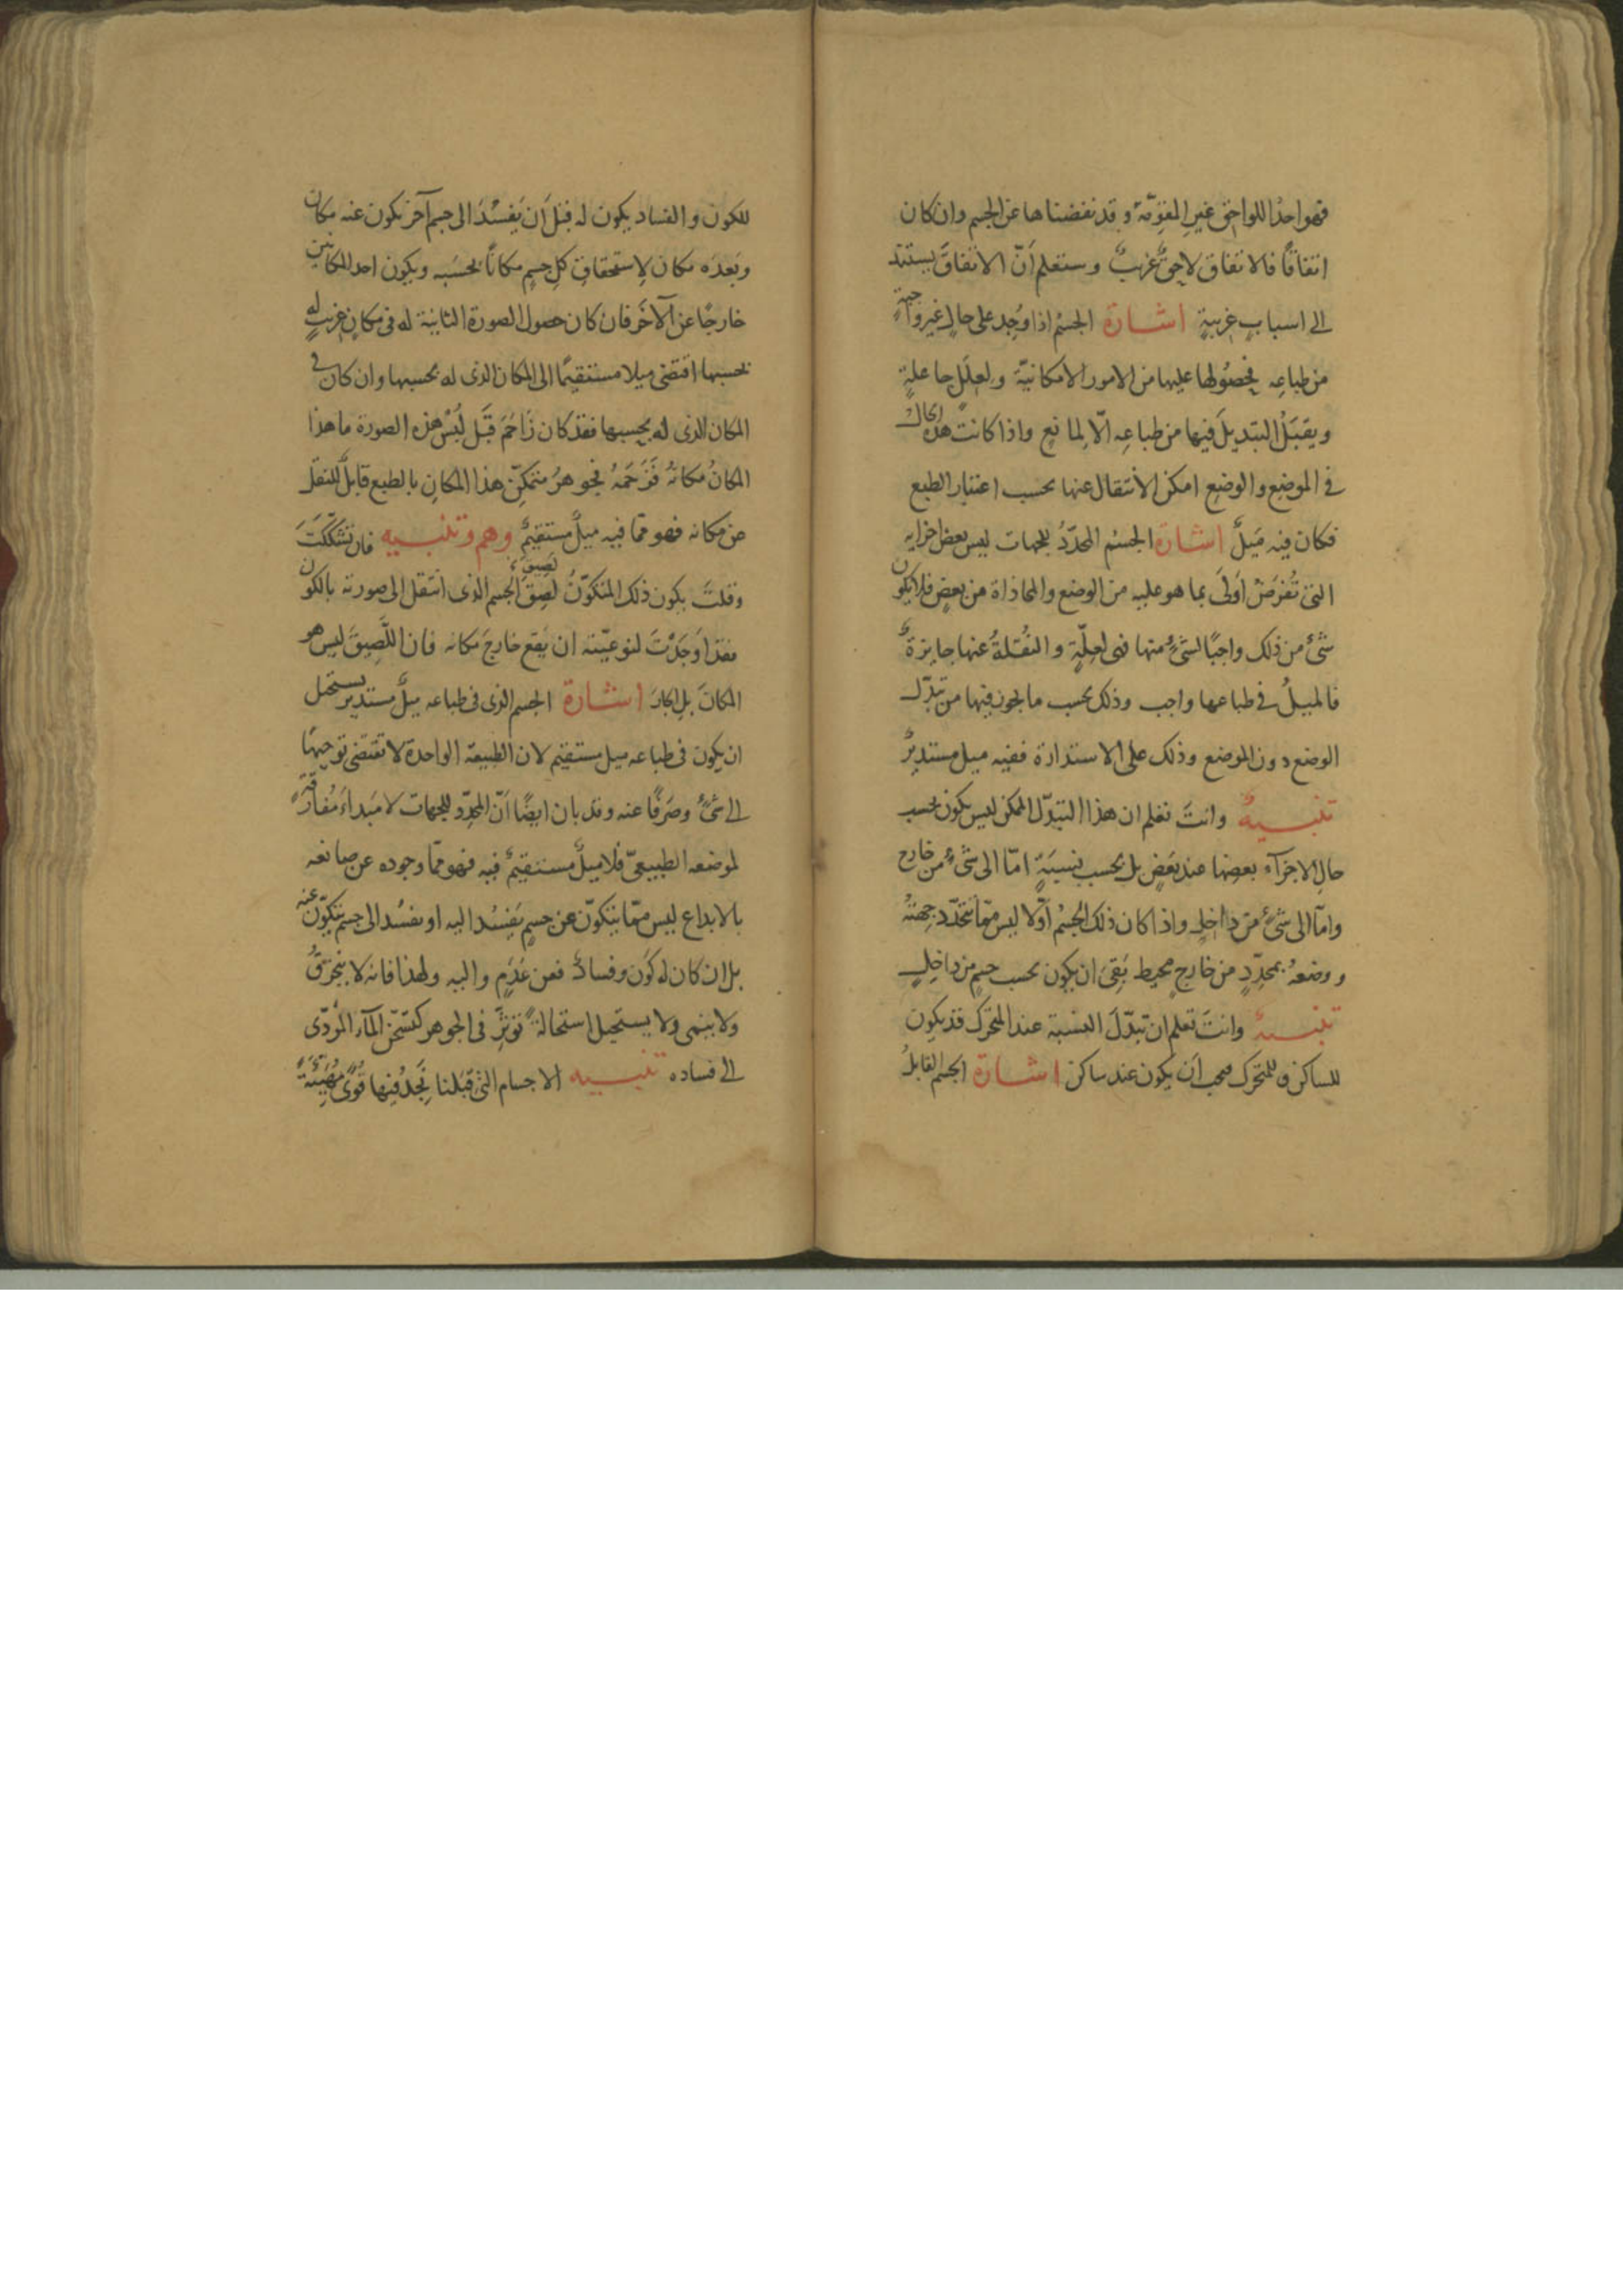 فهو احدُ اللواحق غيرِ المقوّمة وقد نفضناها عن الجسم وان كان
اتفاقًا فالاتفاق لاحقٌ غريبٌ وستعلم أنّ الاتفاقَ يستند
الى اسبابٍ غريبةٍ اشارة الجسمُ اذا وُجد على حالٍ غيرِ واجبةٍ
من طباعِه فحصُولها عليها من الامور الامكانيّة ولعِلَلٍ جاعلةٍ
ويقبَلُ التبديلَ فيها من طباعِه الّا لمانعٍ واذا كانت هذه الحالُ
فى الموضع والوضع امكن الانتقال عنها بحسب اعتبار الطبع
فكان فيه مَيلٌ اشارة الجسم المحدّدُ للجهات ليس بعض اجزايه
التى تُفرَضُ اَولىَ بما هو عليه من الوضع والمحاذاة من بعضٍ فلا يكون
شئٌ من ذلك واجبًا لشئٍ منها فهى لعِلّةٍ والنُقلةُ عنها جايزةٌ
فالميلُ فى طباعها واجب وذلك بحسب ما يجوز فيها من تبدّل
الوضع دون الموضع وذلك على الاستدارة ففيه ميل مستديرٌ
تنبيهٌ وانتَ تعلم ان هذا التبدّل الممكن ليس يكون بحسب
حالِ الاجزآء بعضِها عند بَعضٍ بل بحسب نسبَةٍ امّا الى شئٍ من خارج
وامّا الى شئٍ من داخل واذا كان ذلك الجسمُ اوّلا ليس ممّا تتحدّد جهتهُ
ووضعهُ بمحدِّدٍ من خارجٍ محيط بَقِىَ ان يكون بحسب جسمٍ من داخلٍ
تنبيهٌ وانتَ تعلم ان تبدّلَ النسبة عند المتحرّك قد يكون
للساكن وللمتحرّك فيجب اَن يكون عند ساكن اشارة الجسم القابلُ
للكون والفساد يكون له قبل اَن يَفسُدَ الى جسم آخر يكون عنه مكان
وبَعدَه مكان لاِستحقاقِ كلِ جسمٍ مكانًا بحسَبه ويكون احد المكانين
خارجًا عن الآخَر فان كان حصول الصورة الثانية له فى مكانٍ غريبٍ له
بحسبها اقتضى ميلا مستقيمًا الى المكان الذى له بحسبها وان كان فى
المكان الذى له بحسبها فقد كان زَاحَمَ قَبل لُبْس هذه الصورة ما هذا
المكانُ مكانهُ فزَحَمَهُ فجوهرُ متمكّنِ هذا المكانِ بالطبع قابلٌ للنقل
عن مكانه فهو ممّا فيه ميلٌ مستقيمٌ وهم وتنبيه فان تشكّكتَ
وقلتَ يكون ذلك المتكوّنُ لَصِقَ الجسم الذى انتقل الى صورته بالكون
لَصِيقَ
فقد اوَجَدْتَ لنوعيّته ان يَقع خارجَ مكانه فان اللَّصِيقَ ليس هو
المكانَ بل الجارَ اشارة الجسم الذى فى طباعه ميلٌ مستدير يستحيل
ان يكون فى طباعه ميل مستقيم لان الطبيعة الواحدة لا تقتضى توجيهًا
الى شئٍ وصَرفًا عنه وقد بان ايضًا اَنّ المحدِّد للجهات لا مَبدأَ مُفارَقةٍ
لموضعه الطبيعىّ فلا ميلٌ مستقيمٌ فيه فهو ممّا وجوده عن صانعه
بالابداع ليس ممّا يتكوّن عن جسمٍ يَفسُد اليه او يفسُد الى جسمٍ يتكوّن عنه
بل ان كان له كَون وفسادٌ فعن عَدَمٍ واليه ولهذا فانه لا ينخرقُ
ولا ينمى ولا يستحيل استحالةً تؤثِّر فى الجوهر كتسخّن المآء المؤدّى
الى فساده تنبيه الاجسام التى قبلنا نَجدُ فيها قُوًى مُهَيِّئةً